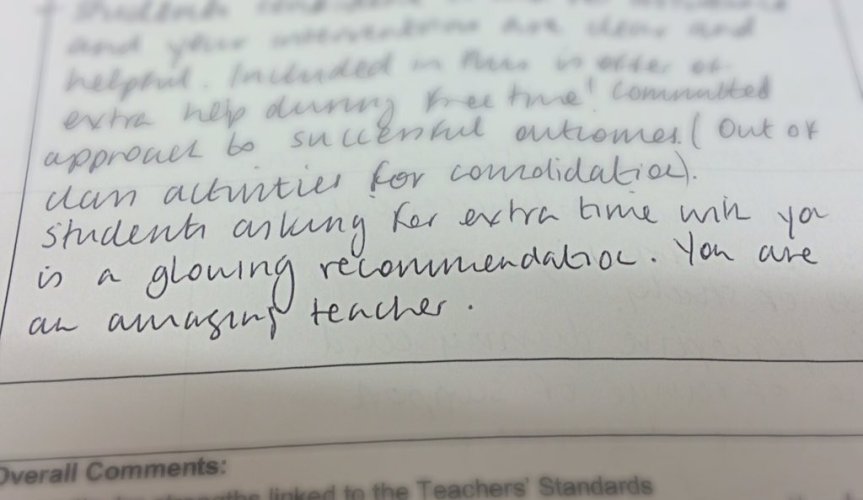 Students
and your interventions are clear and
helpful. Included in this is offer of
extra help during free time! Committed
approach to successful outcomes. (Out of
class activities for consolidation).
Students asking for extra time with you
is a glowing recommendation. You are
an amazing teacher.
Overall Comments:
strengths linked to the Teachers' Standards